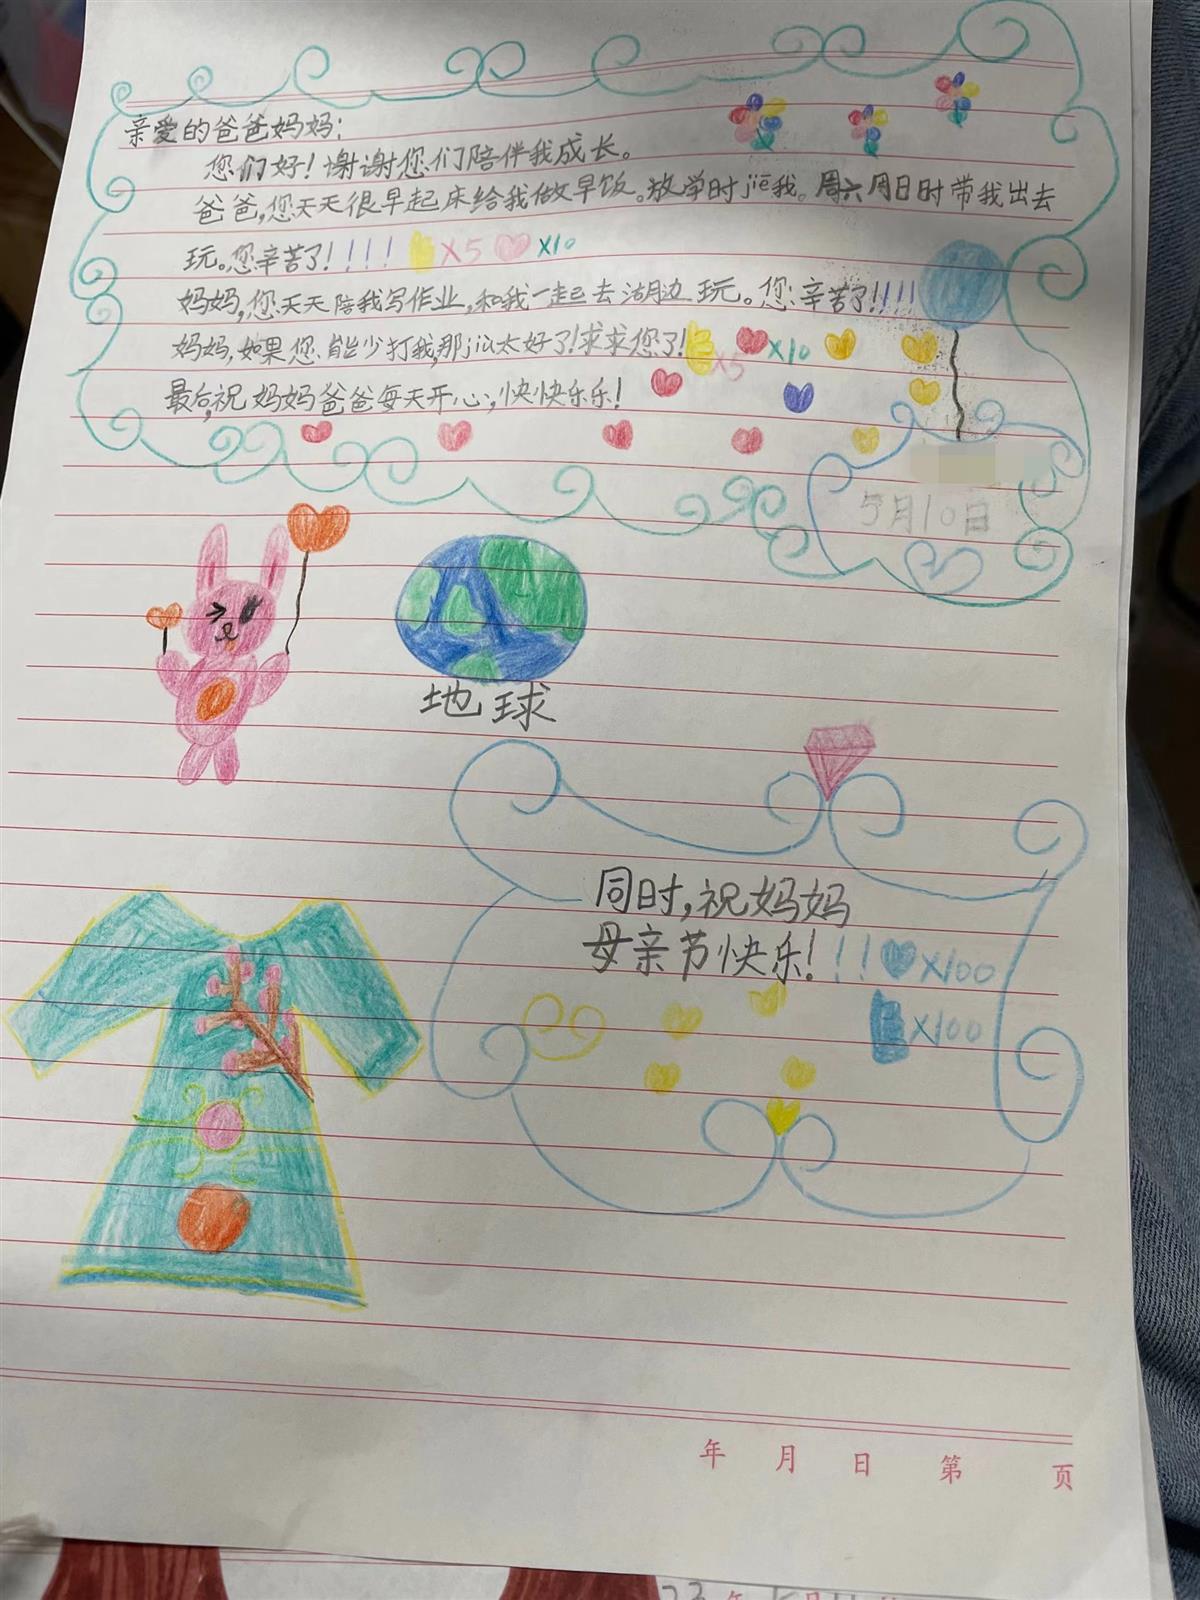 亲爱的爸爸妈妈:
您们好!谢谢您们陪伴我成长。
爸爸,您天天很早起床给我做早饭。放学时jiē我。周六周日时带我出去
玩。您辛苦了!!!! X5 X10
妈妈,您天天陪我写作业,和我一起去湖边玩。您辛苦了!!!!
妈妈,如果您能少打我,那jiù太好了!求求您了! X5 X10
最后,祝妈妈爸爸每天开心,快快乐乐!
5月10日
地球
同时,祝妈妈
母亲节快乐!!! X100
X100
年 月 日 第 页